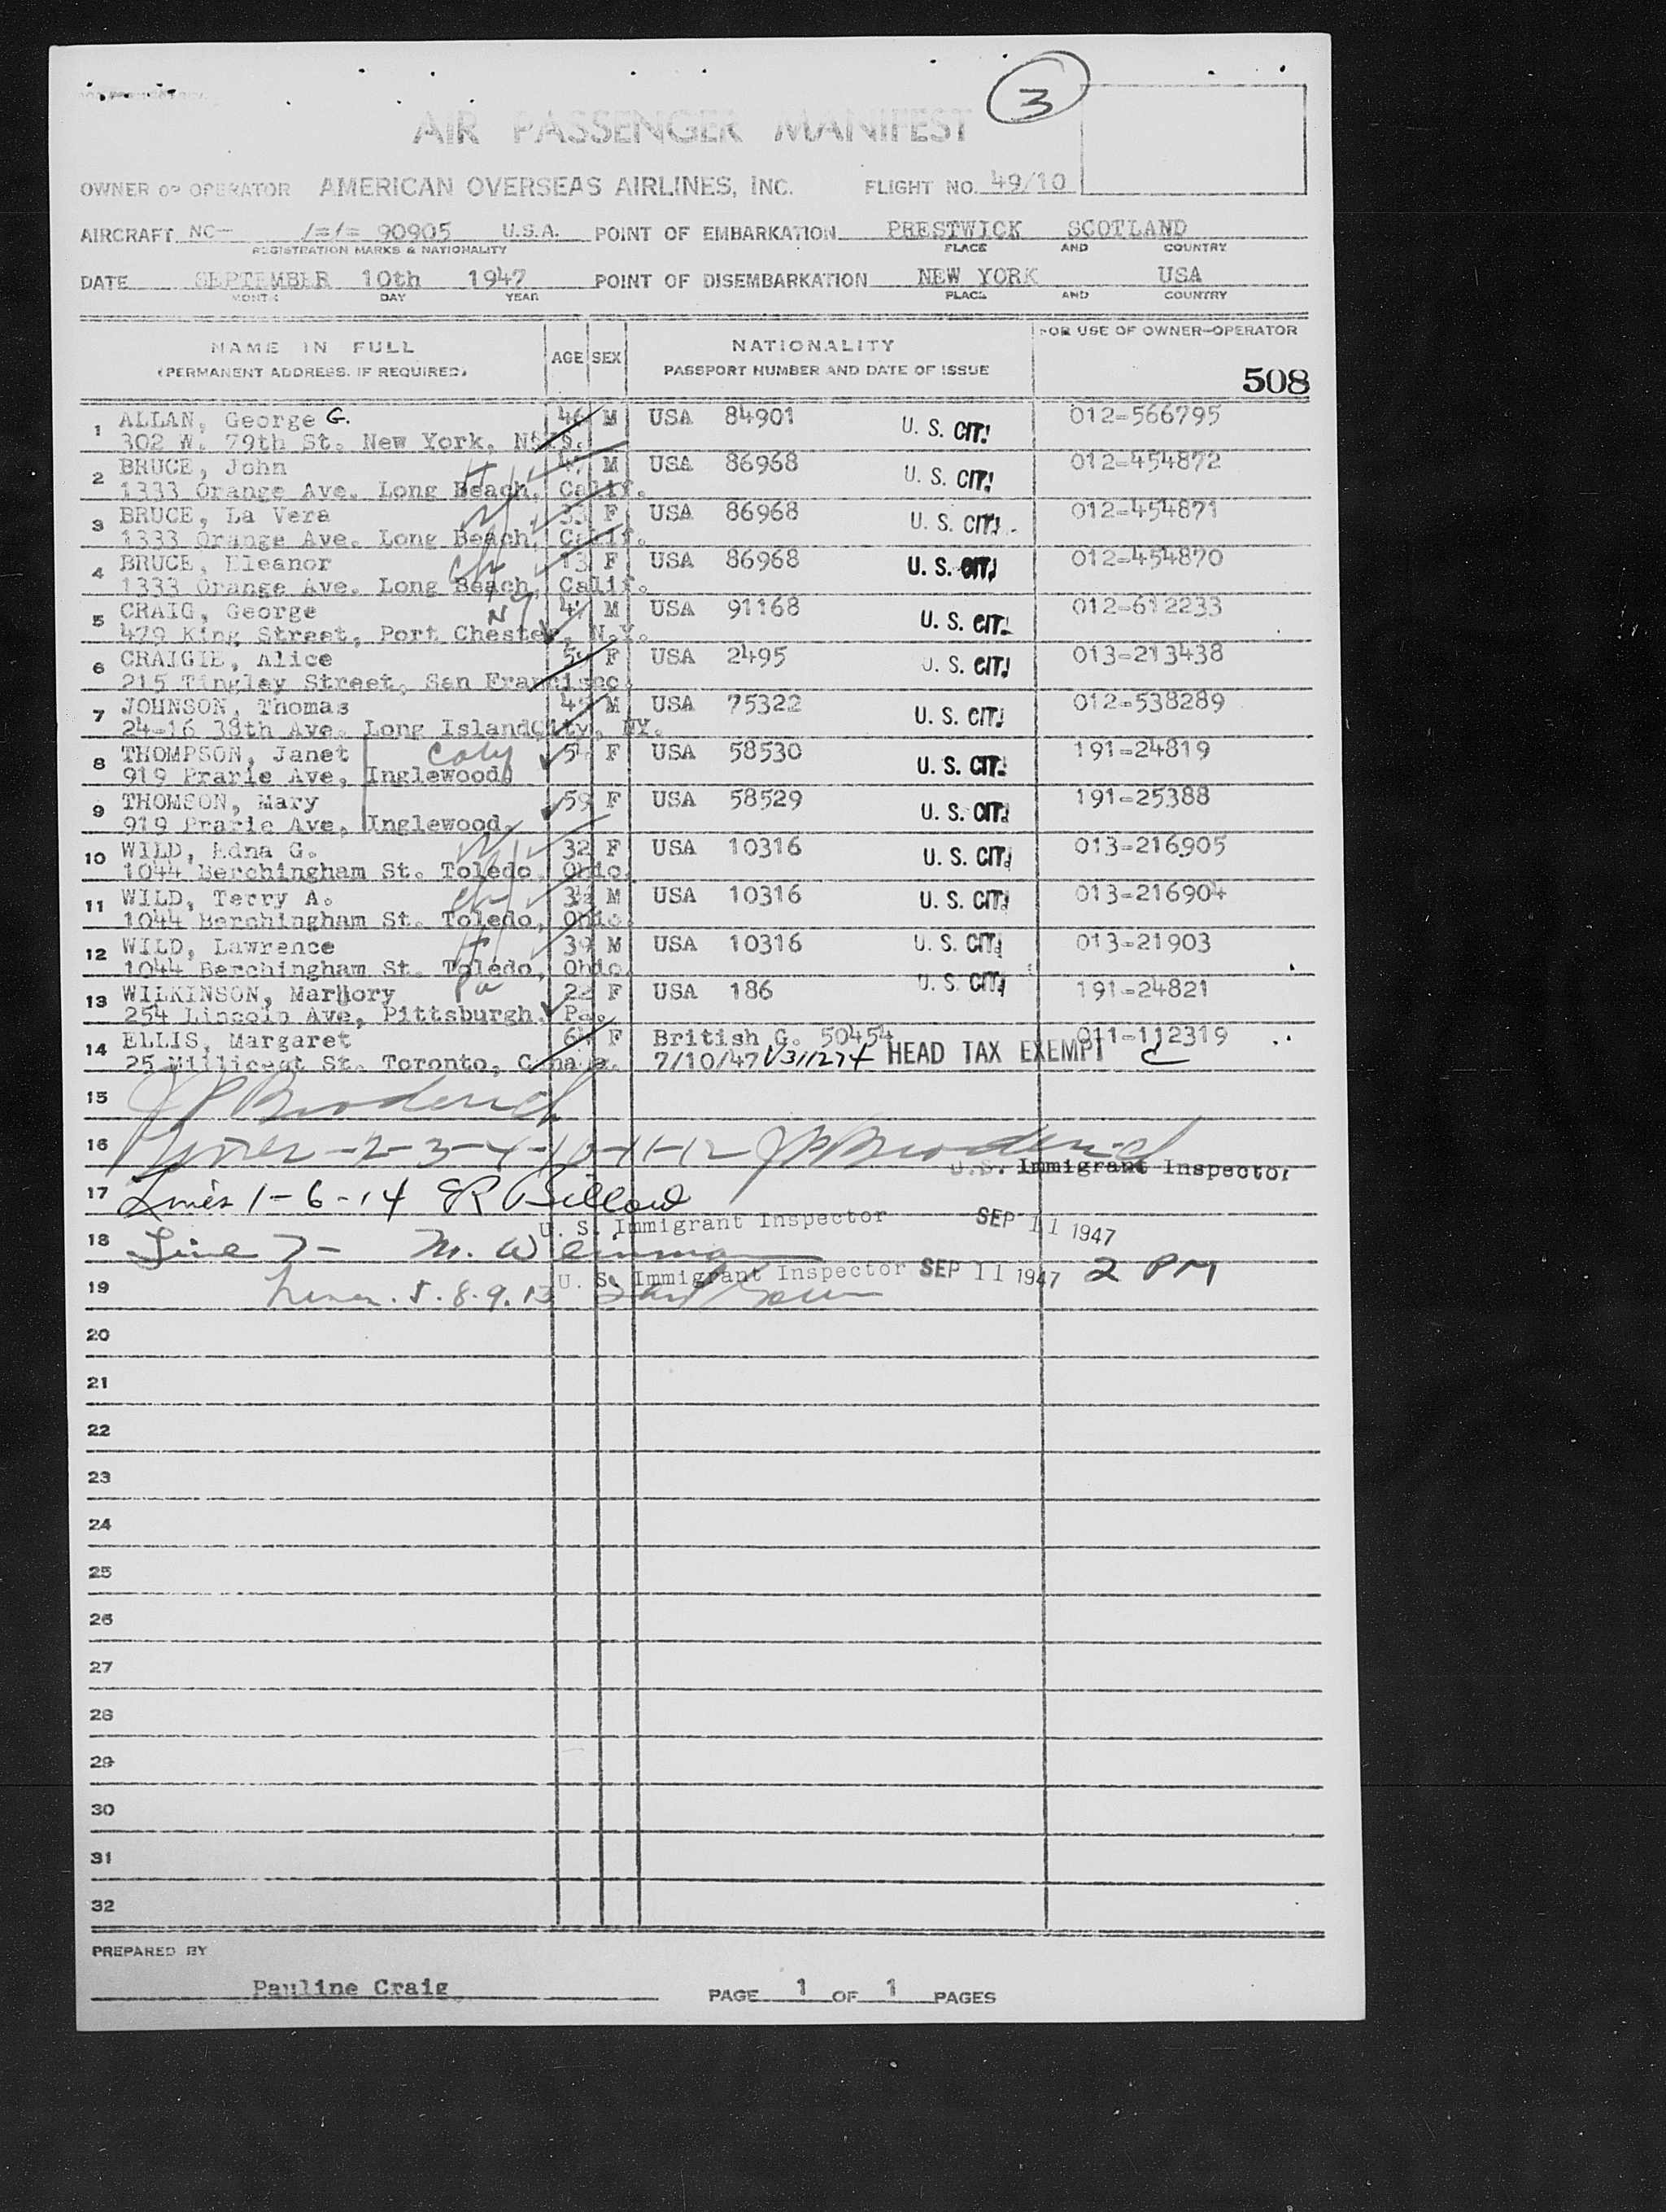 3
AIR PASSENGER MANIFEST
OWNER OR OPERATOR AMERICAN OVERSEAS AIRLINES, INC. FLIGHT NO. 49/10
AIRCRAFT NC- /=/= 90905 U.S.A. POINT OF EMBARKATION PRESTWICK SCOTLAND
REGISTRATION MARKS & NATIONALITY PLACE AND COUNTRY
DATE SEPTEMBER 10th 1947 POINT OF DISEMBARKATION NEW YORK USA
MONTH DAY YEAR PLACE AND COUNTRY
NAME IN FULL AGE SEX NATIONALITY FOR USE OF OWNER-OPERATOR
(PERMANENT ADDRESS, IF REQUIRED) PASSPORT NUMBER AND DATE OF ISSUE
508
1 ALLAN, George G. 46 M USA 84901 U. S. CIT. 012-566795
302 W. 79th St. New York,
2 BRUCE, John 47 M USA 86968 U. S. CIT. 012-454872
1333 Orange Ave. Long Beach, Calif.
3 BRUCE, La Vera 33 F USA 86968 U. S. CIT. 012-454871
1333 Orange Ave. Long Beach, Calif.
4 BRUCE, Eleanor 13 F USA 86968 U. S. CIT. 012-454870
1333 Orange Ave. Long Beach, Calif.
5 CRAIG, George M USA 91168 U. S. CIT. 012-612233
479 King Street, Port Chester, N.Y.
6 CRAIGIE, Alice F USA 2495 U. S. CIT. 013-213438
215 Tingley Street, San Francisco.
7 JOHNSON, Thomas M USA 75322 U. S. CIT. 012-538289
24-16 38th Ave. Long IslandCity, NY.
8 THOMPSON, Janet Caly F USA 58530 U. S. CIT. 191-24819
919 Prarie Ave, Inglewood,
9 THOMSON, Mary 59 F USA 58529 U. S. CIT. 191-25388
919 Prarie Ave, Inglewood,
10 WILD, Edna G. 32 F USA 10316 U. S. CIT. 013-216905
1044 Berchingham St. Toledo, Ohio.
11 WILD, Terry A. M USA 10316 U. S. CIT. 013-216904
1044 Berchingham St. Toledo, Ohio.
12 WILD, Lawrence 39 M USA 10316 U. S. CIT. 013-21903
1044 Berchingham St. Toledo, Ohio.
13 WILKINSON, Marjory Pa F USA 186 U. S. CIT. 191-24821
254 Lincoln Ave, Pittsburgh, Pa.
14 ELLIS, Margaret 64 F British G. 50454 011-112319
25 Millicent St. Toronto, Canada. 7/10/47 V311274 HEAD TAX EXEMPT C
15 JP Broderick
16 Lines -2-3-4-10-11-12 JP Broderick
U.S. Immigrant Inspector
17 Lines 1-6-14
U. S. Immigrant Inspector SEP 11 1947
18 Line 7-
U. S. Immigrant Inspector SEP 11 1947 2 PM
19 Lines. 5. 8. 9. 13
20
21
22
23
24
25
26
27
28
29
30
31
32
PREPARED BY
Pauline Craig PAGE 1 OF 1 PAGES